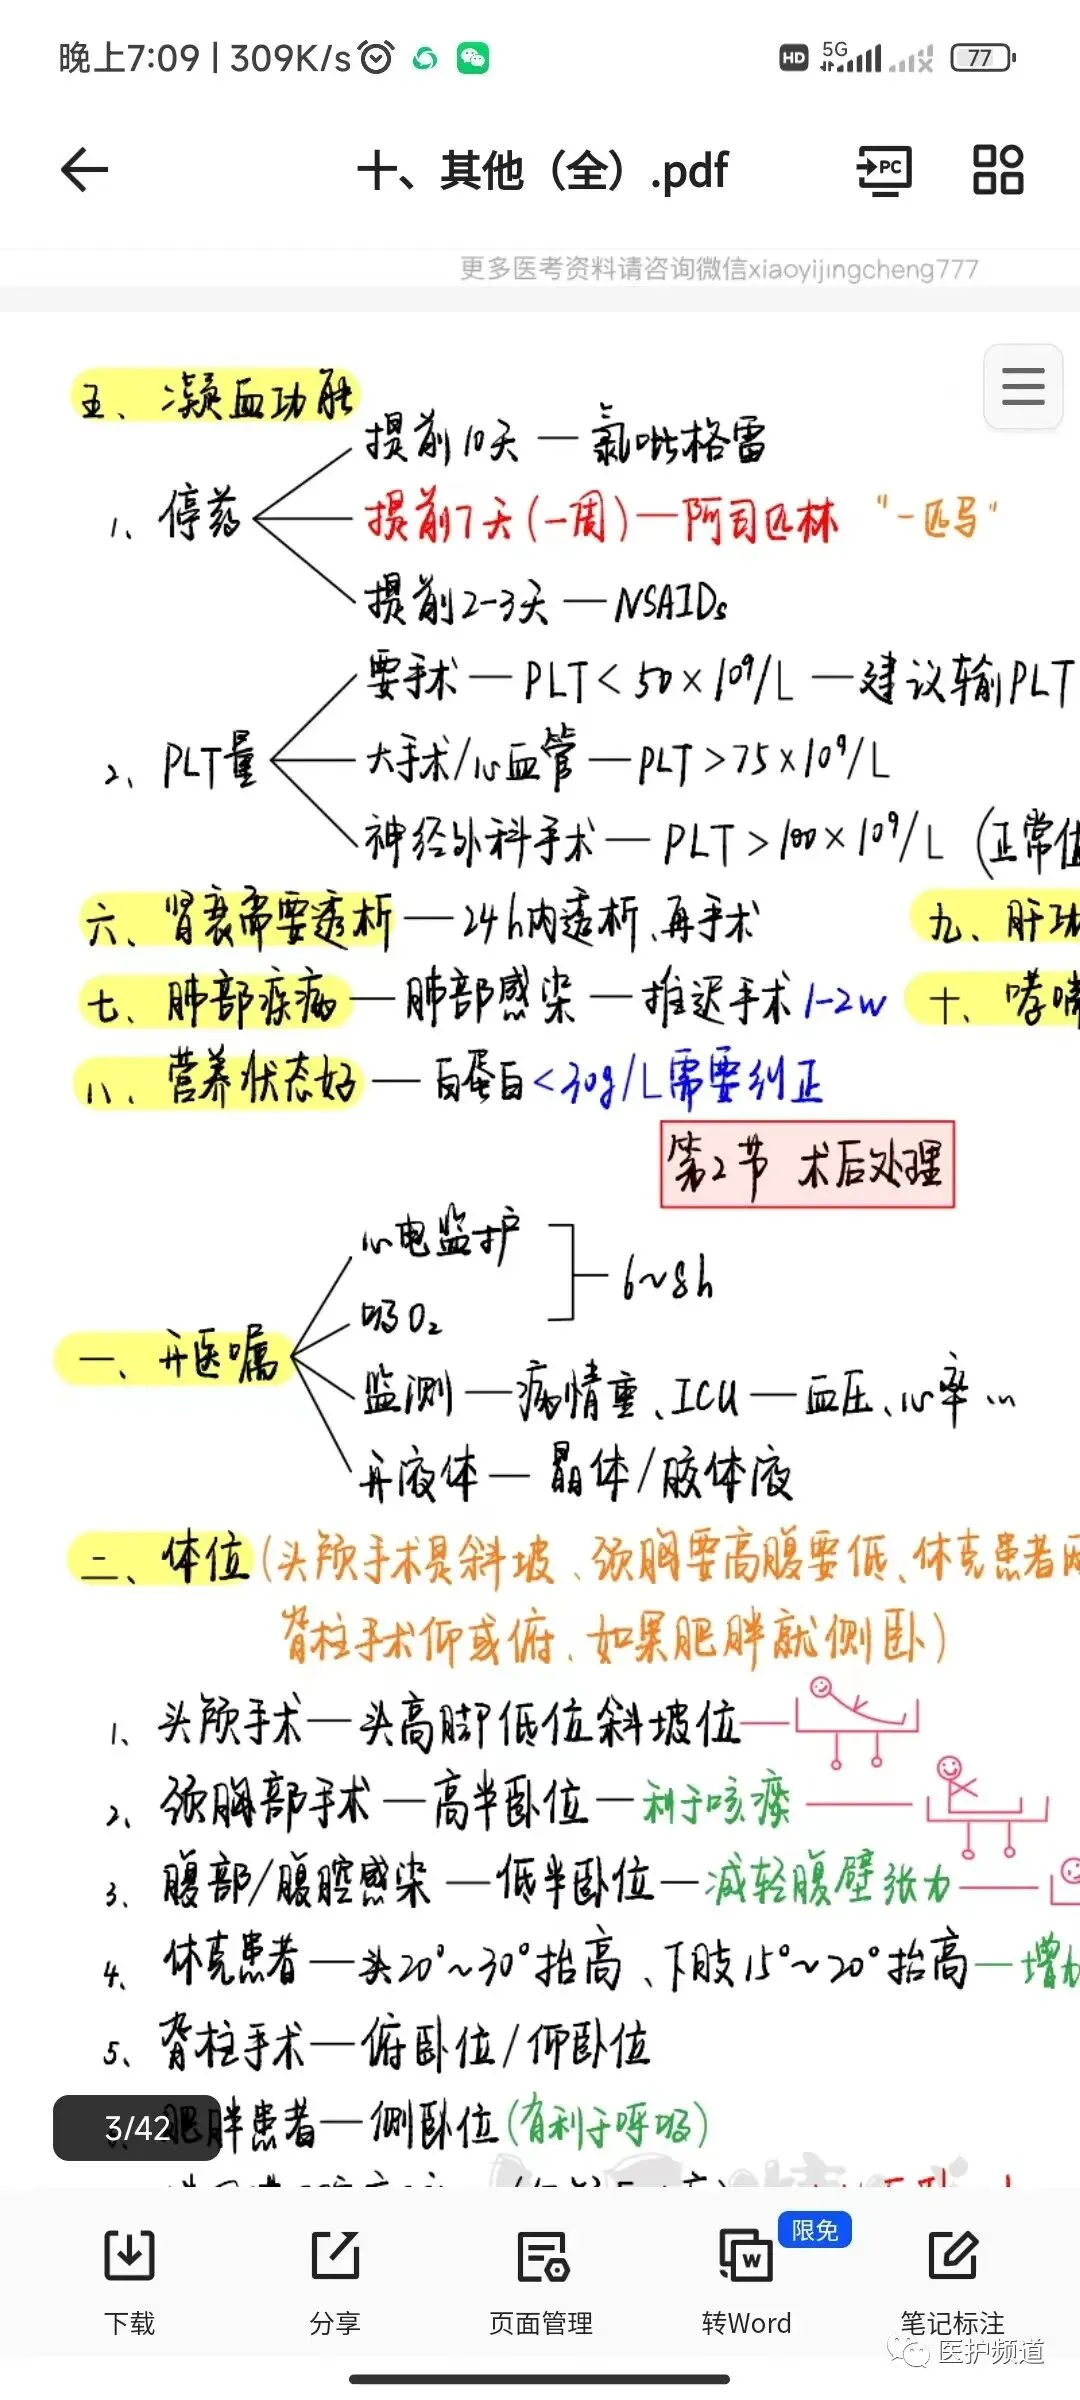 晚上7:09 | 309K/s
HD 5G 77
十、其他（全）.pdf
PC
更多医考资料请咨询微信xiaoyijingcheng777
五、凝血功能
提前10天 — 氯吡格雷
1、停药
提前7天(一周) — 阿司匹林 "一匹马"
提前2-3天 — NSAIDs
要手术 — PLT < 50×10⁹/L — 建议输PLT
2、PLT量
大手术/心血管 — PLT > 75×10⁹/L
神经外科手术 — PLT > 100×10⁹/L (正常值
六、肾衰需要透析 — 24h内透析、再手术
九、肝功
七、肺部疾病 — 肺部感染 — 推迟手术1-2w
十、哮喘
八、营养状态好 — 白蛋白<30g/L需要纠正
第2节 术后处理
心电监护
6~8h
吸O₂
一、开医嘱
监测 — 病情重、ICU — 血压、心率…
开液体 — 晶体/胶体液
二、体位(头颅手术是斜坡、颈胸要高腹要低、休克患者两
脊柱手术仰或俯、如果肥胖就侧卧)
1、头颅手术 — 头高脚低位斜坡位
2、颈胸部手术 — 高半卧位 — 利于咳痰
3、腹部/腹腔感染 — 低半卧位 — 减轻腹壁张力
4、休克患者 — 头20°~30°抬高、下肢15°~20°抬高 — 增加
5、脊柱手术 — 俯卧位/仰卧位
肥胖患者 — 侧卧位(有利于呼吸)
3/42
限免
下载
分享
页面管理
转Word
笔记标注
医护频道